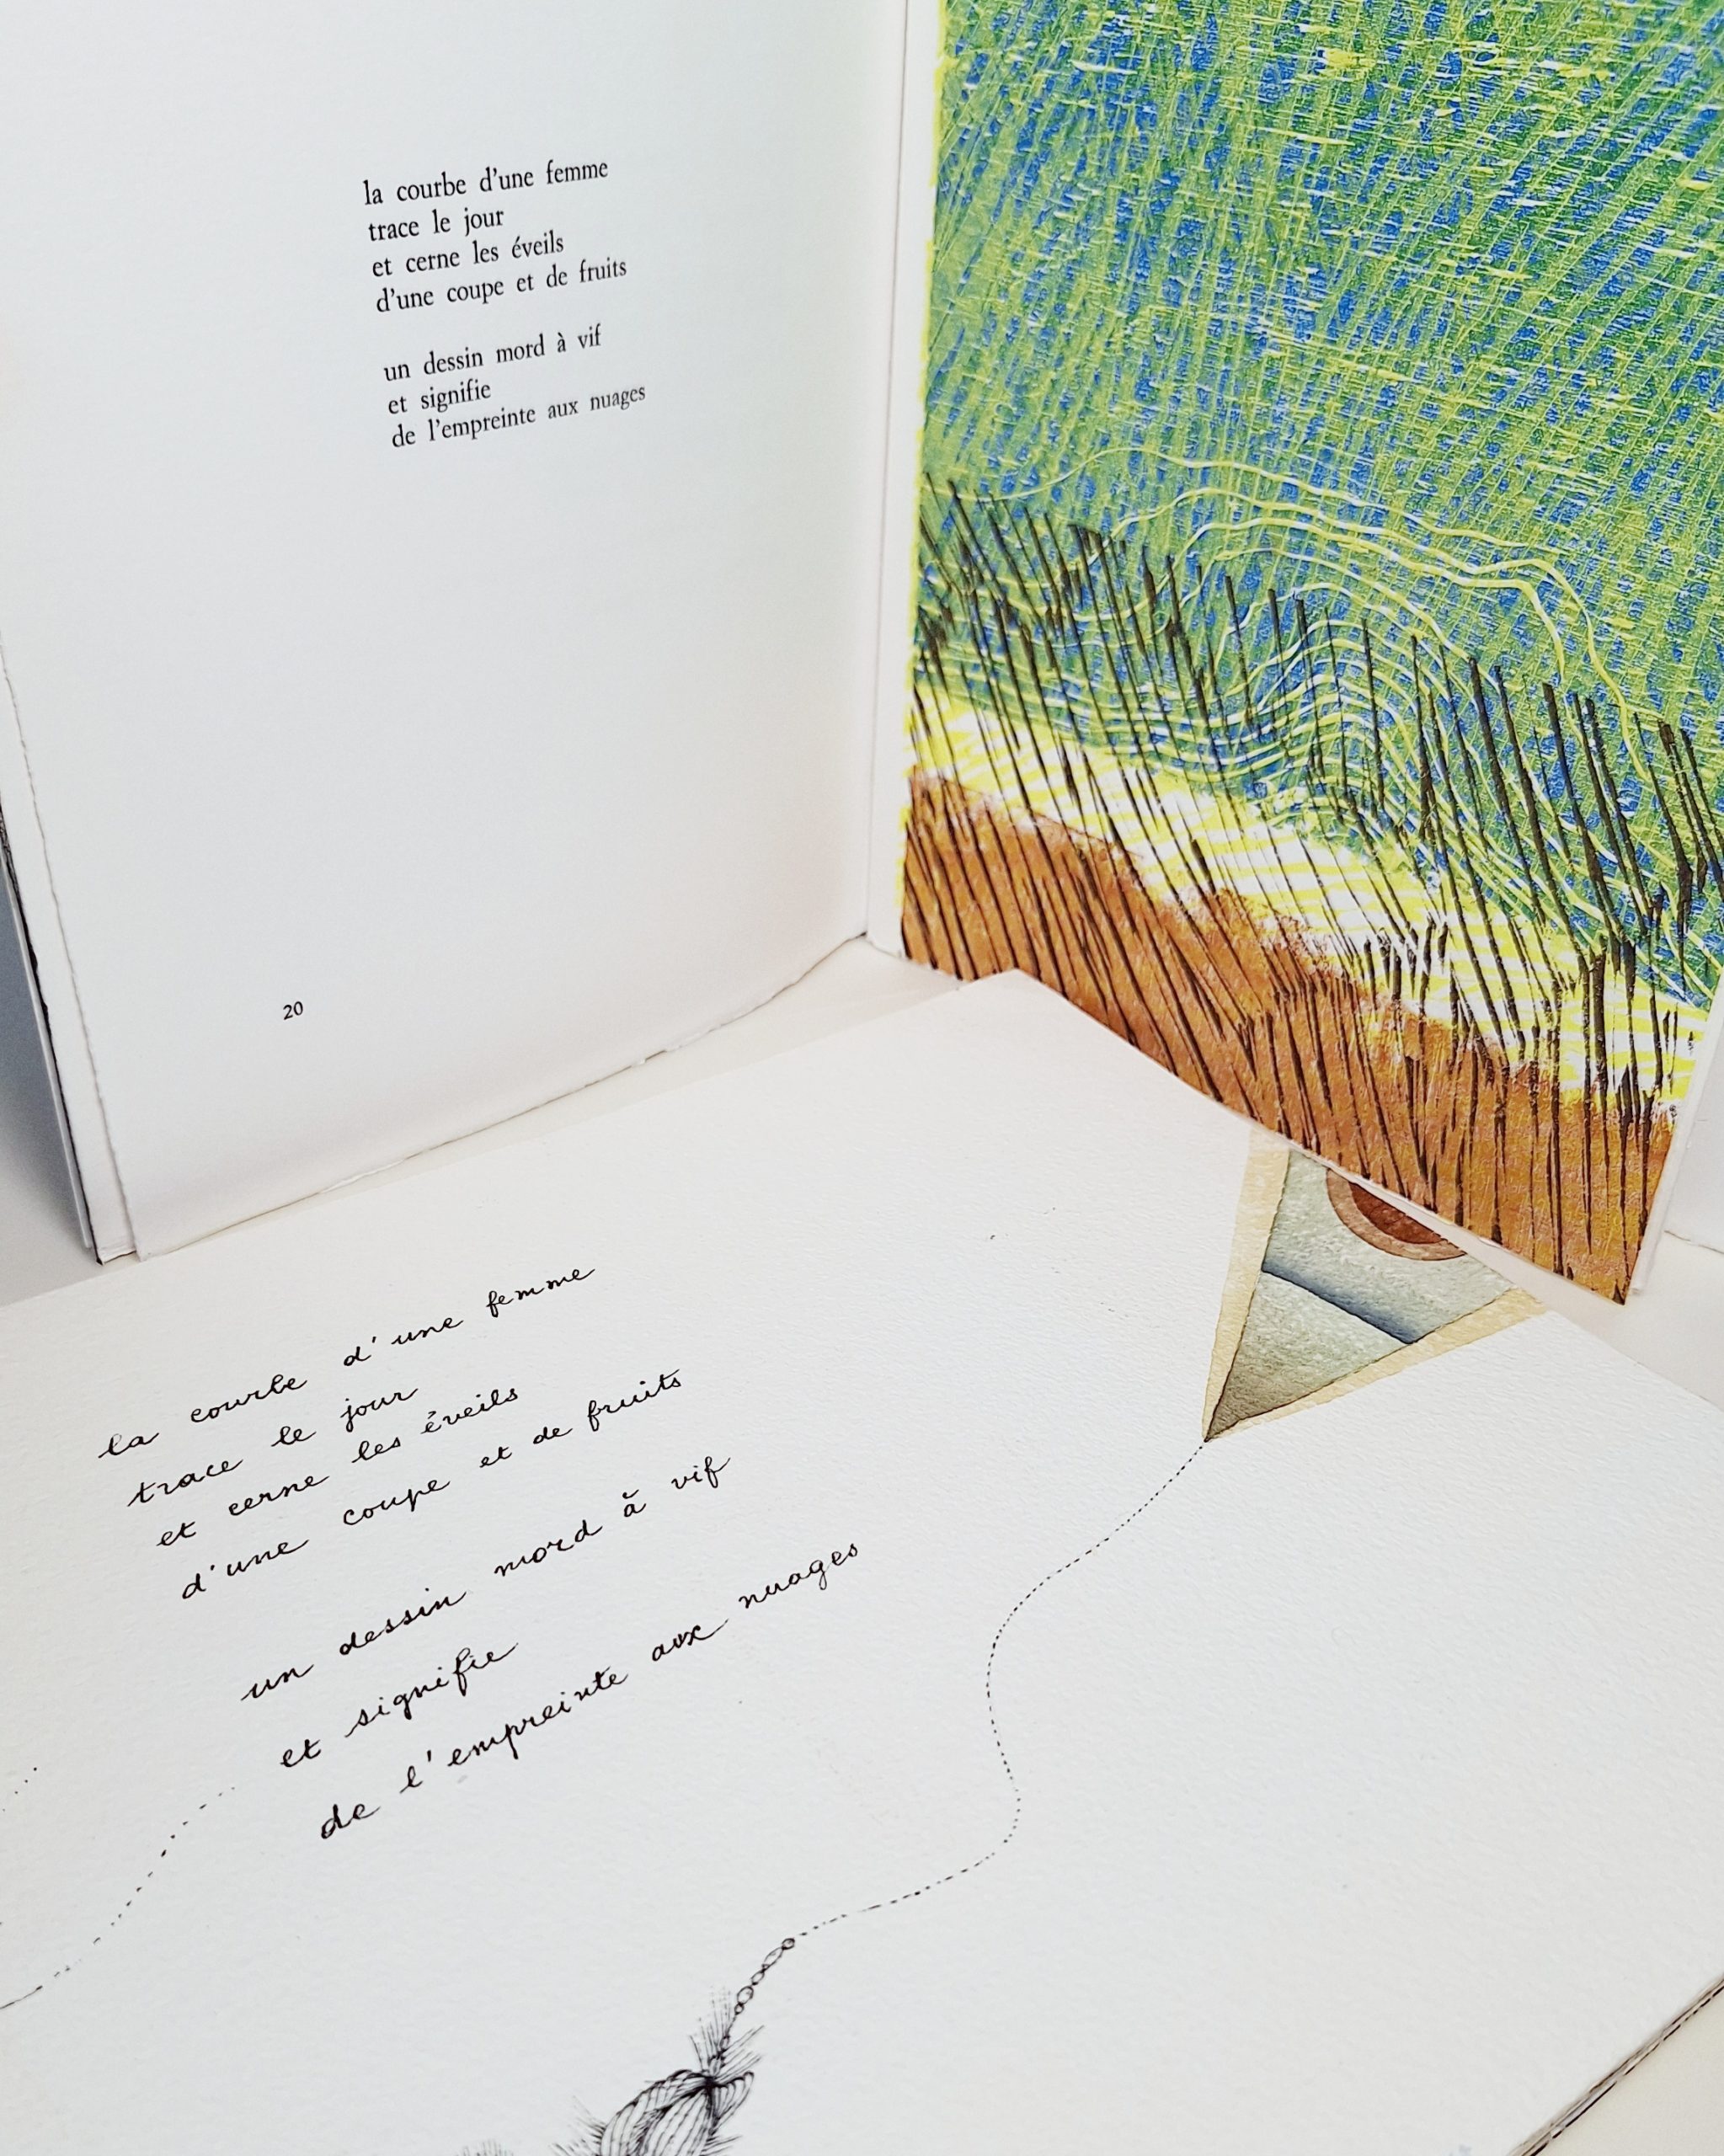 la courbe d'une femme
trace le jour
et cerne les éveils
d'une coupe et de fruits
un dessin mord à vif
et signifie
de l'empreinte aux nuages
20
la courbe d'une femme
trace le jour
et cerne les éveils
d'une coupe et de fruits
un dessin mord à vif
et signifie
de l'empreinte aux nuages